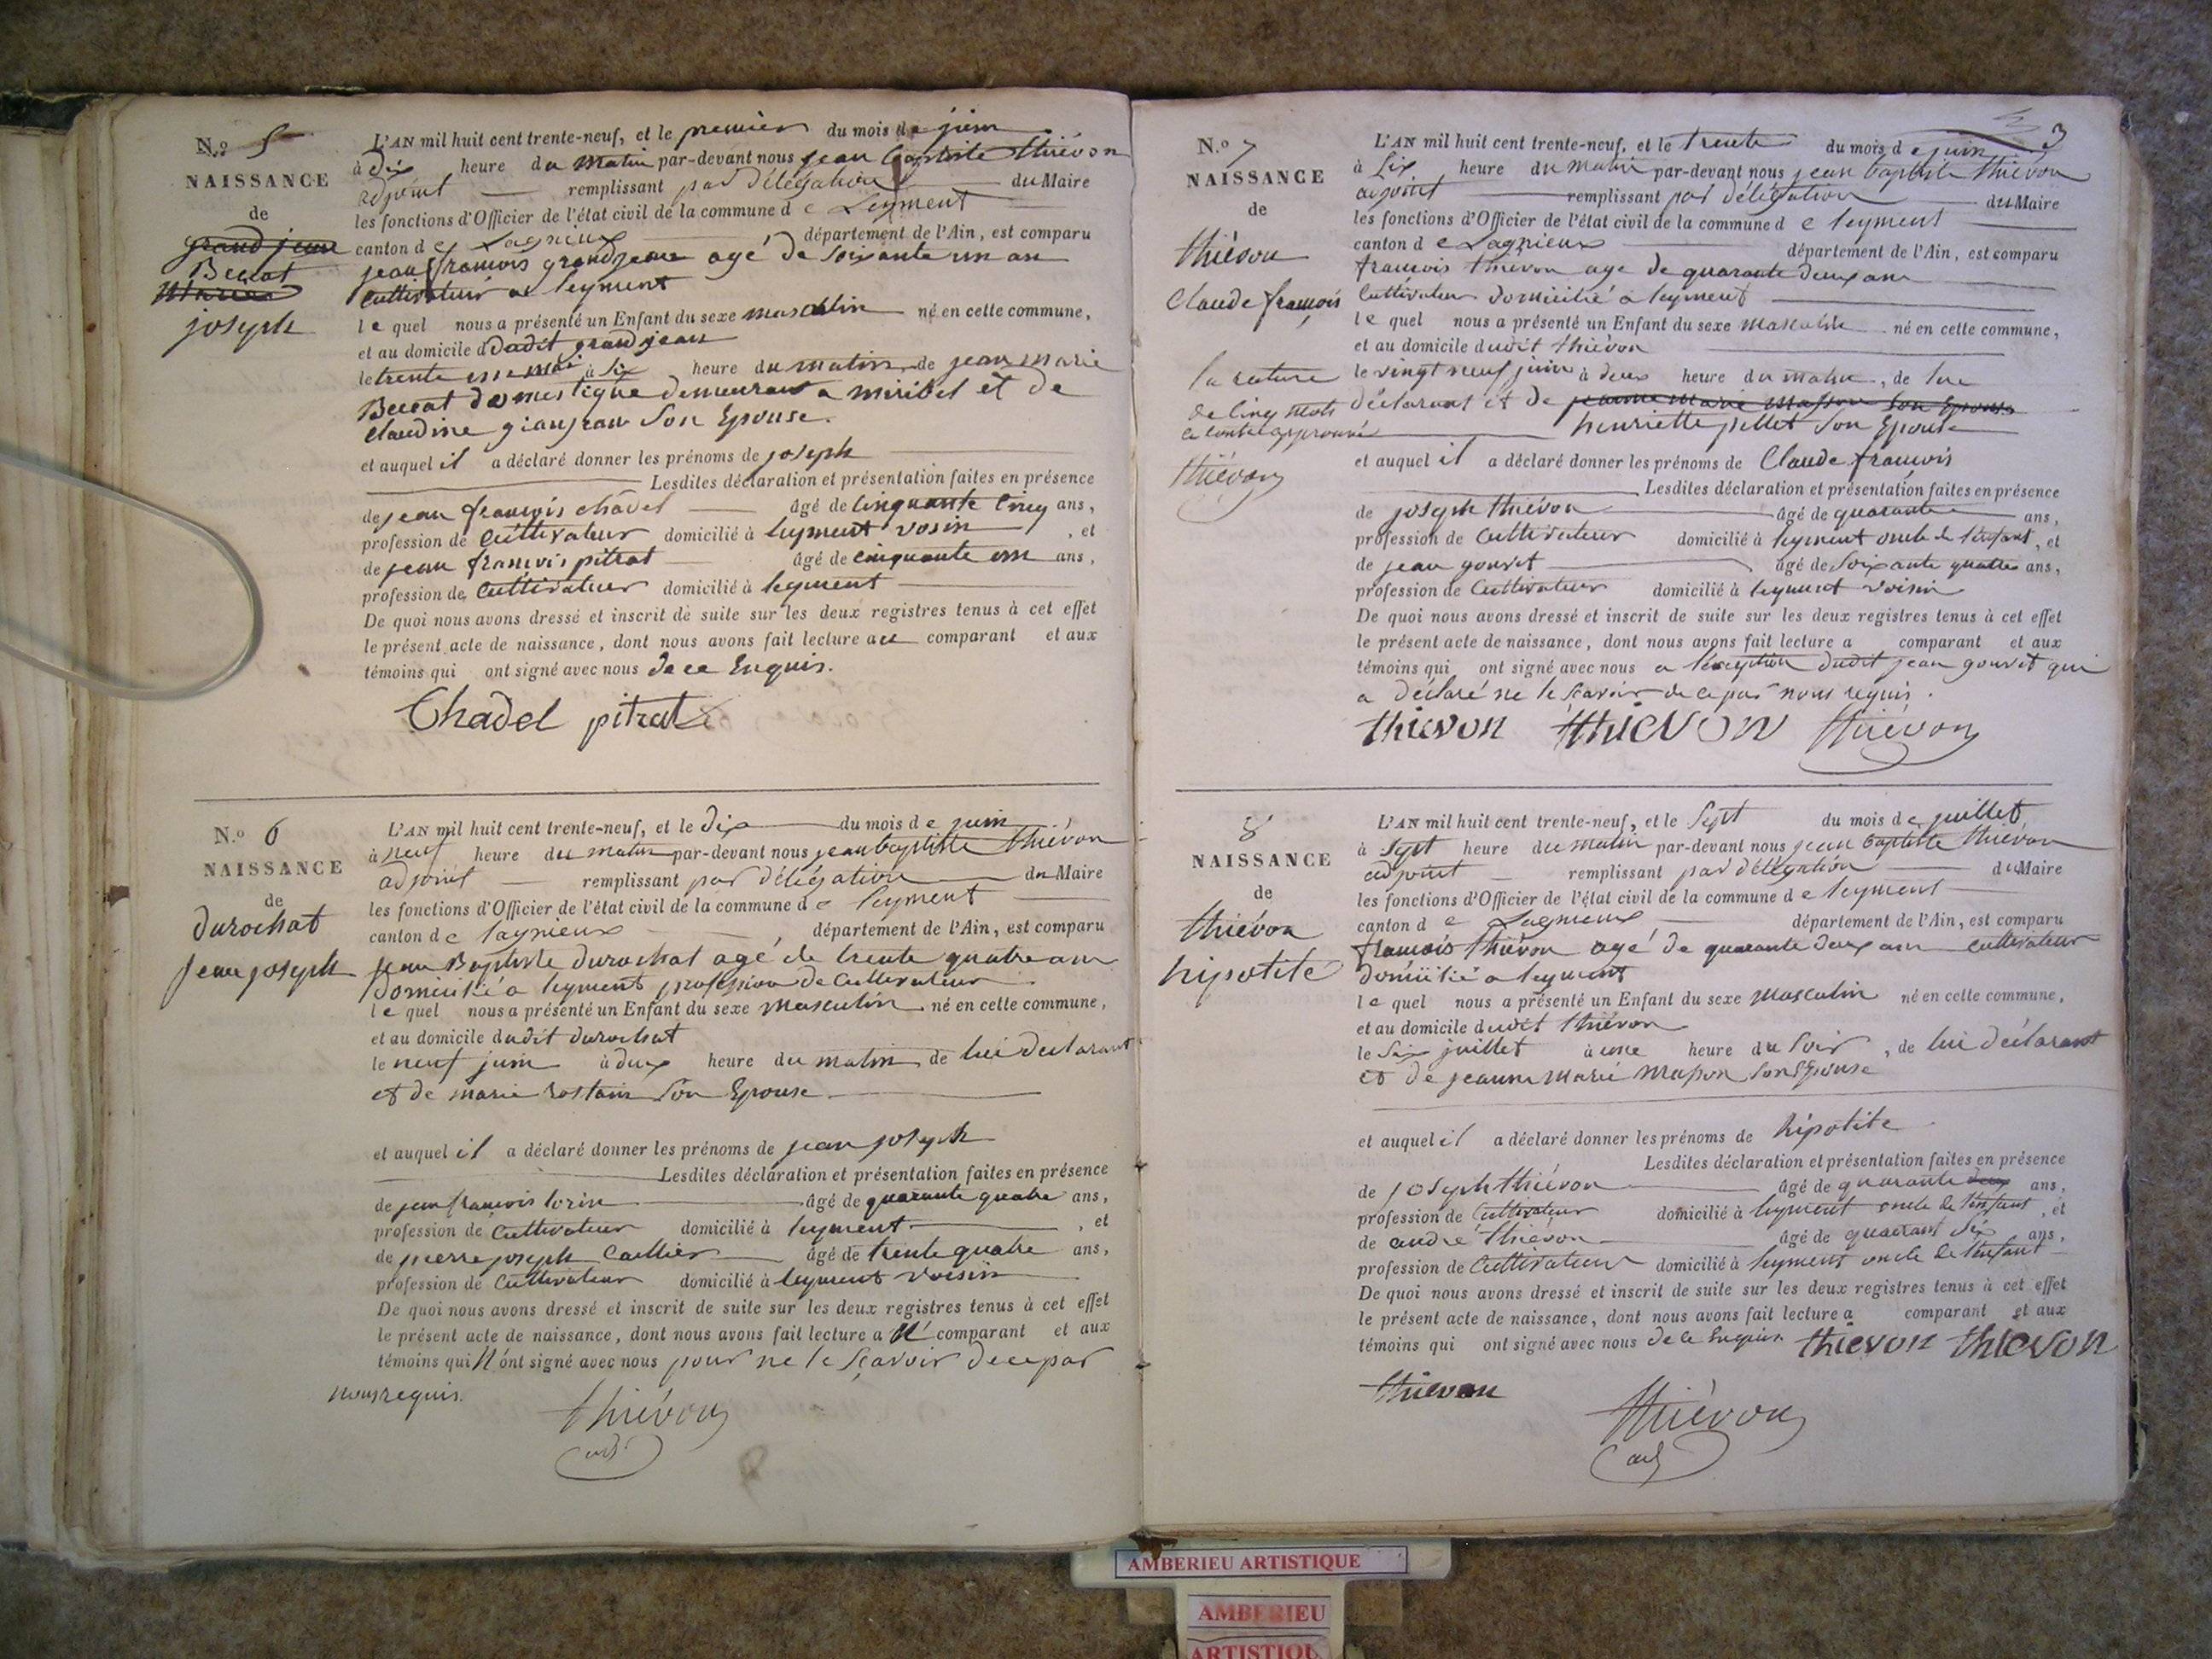 N.o 5
NAISSANCE
de
grand jean
Beccat
joseph
L'AN mil huit cent trente-neuf, et le premier du mois de juin
à dix heure du matin par-devant nous jean baptiste thiévon
adjoint remplissant par délégation du Maire
les fonctions d'Officier de l'état civil de la commune de Leyment
canton de Lagnieux département de l'Ain, est comparu
jean francois grandjean agé de soixante un an
cultivateur a leyment
le quel nous a présenté un Enfant du sexe masculin né en cette commune,
et au domicile dudit grandjean
le trente un mai à six heure du matin de jean marie
Beccat domestique demeurant a miribel et de
claudine grandjean son Epouse.
et auquel il a déclaré donner les prénoms de joseph
Lesdites déclaration et présentation faites en présence
de jean francois chadel âgé de cinquante cinq ans,
profession de cultivateur domicilié à leyment vosin, et
de jean francois pitrat âgé de cinquante un ans,
profession de cultivateur domicilié à leyment
De quoi nous avons dressé et inscrit de suite sur les deux registres tenus à cet effet
le présent acte de naissance, dont nous avons fait lecture au comparant et aux
témoins qui ont signé avec nous de ce Enquis.
Chadel pitrat
N.o 6
NAISSANCE
de
durochat
jean joseph
L'AN mil huit cent trente-neuf, et le dix du mois de juin
à neuf heure du matin par-devant nous jean baptiste thiévon
adjoint remplissant par délégation du Maire
les fonctions d'Officier de l'état civil de la commune de leyment
canton de lagnieux département de l'Ain, est comparu
jean Baptiste durochat agé de trente quatre an
domicilié a leyment profession de cultivateur
le quel nous a présenté un Enfant du sexe masculin né en cette commune,
et au domicile dudit durochat
le neuf juin à deux heure du matin de lui declarant
et de marie rostain son Epouse
et auquel il a déclaré donner les prénoms de jean joseph
Lesdites déclaration et présentation faites en présence
de jean francois âgé de quarante quatre ans,
profession de cultivateur domicilié à leyment, et
de pierre joseph Caillier âgé de trente quatre ans,
profession de cultivateur domicilié à leyment voisin
De quoi nous avons dressé et inscrit de suite sur les deux registres tenus à cet effet
le présent acte de naissance, dont nous avons fait lecture a comparant et aux
témoins qui n'ont signé avec nous pour ne le sçavoir de ce par
nous requis.
thiévon
adj
3
N.o 7
NAISSANCE
de
thiévon
Claude françois
la rature
de cinq mots
ci contre approuvée
thiévon
L'AN mil huit cent trente-neuf, et le trente du mois de juin
à six heure du matin par-devant nous jean baptiste thiévon
adjoint remplissant par délégation du Maire
les fonctions d'Officier de l'état civil de la commune de leyment
canton de Lagnieux département de l'Ain, est comparu
francois thiévon age de quarante deux an
cultivateur domicilié a leyment
le quel nous a présenté un Enfant du sexe masculin né en cette commune,
et au domicile dudit thiévon
le vingt neuf juin à deux heure du matin, de lui
déclarant et de jeanne marie masson son Epouse
henriette pillet son Epouse
et auquel il a déclaré donner les prénoms de Claude francois
Lesdites déclaration et présentation faites en présence
de joseph thiévon âgé de quarante ans,
profession de cultivateur domicilié à leyment oncle de l'enfant, et
de jean gouvet âgé de soixante quatre ans,
profession de cultivateur domicilié à leyment voisin
De quoi nous avons dressé et inscrit de suite sur les deux registres tenus à cet effet
le présent acte de naissance, dont nous avons fait lecture a comparant et aux
témoins qui ont signé avec nous a l'exception dudit jean gouvet qui
a déclaré ne le scavoir de ce par nous requis.
thievon thievon thiévon
8
NAISSANCE
de
thiévon
hipotite
L'AN mil huit cent trente-neuf, et le sept du mois de juillet
à sept heure du matin par-devant nous jean baptiste thiévon
adjoint remplissant par délégation du Maire
les fonctions d'Officier de l'état civil de la commune de leyment
canton de Lagnieux département de l'Ain, est comparu
francois thiévon agé de quarante deux an cultivateur
domicilié a leyment
le quel nous a présenté un Enfant du sexe masculin né en cette commune,
et au domicile dudit thiévon
le six juillet à une heure du soir, de lui déclarant
et de jeanne marie masson son Epouse
et auquel il a déclaré donner les prénoms de hipotite
Lesdites déclaration et présentation faites en présence
de joseph thiévon âgé de quarante ans,
profession de cultivateur domicilié à leyment oncle de l'enfant, et
de andré thiévon âgé de quarante six ans,
profession de cultivateur domicilié à leyment oncle de l'enfant
De quoi nous avons dressé et inscrit de suite sur les deux registres tenus à cet effet
le présent acte de naissance, dont nous avons fait lecture a comparant et aux
témoins qui ont signé avec nous de ce Enquis. thievon thievon
thievon
thiévon
adj
AMBERIEU ARTISTIQUE
AMBERIEU
ARTISTIQU